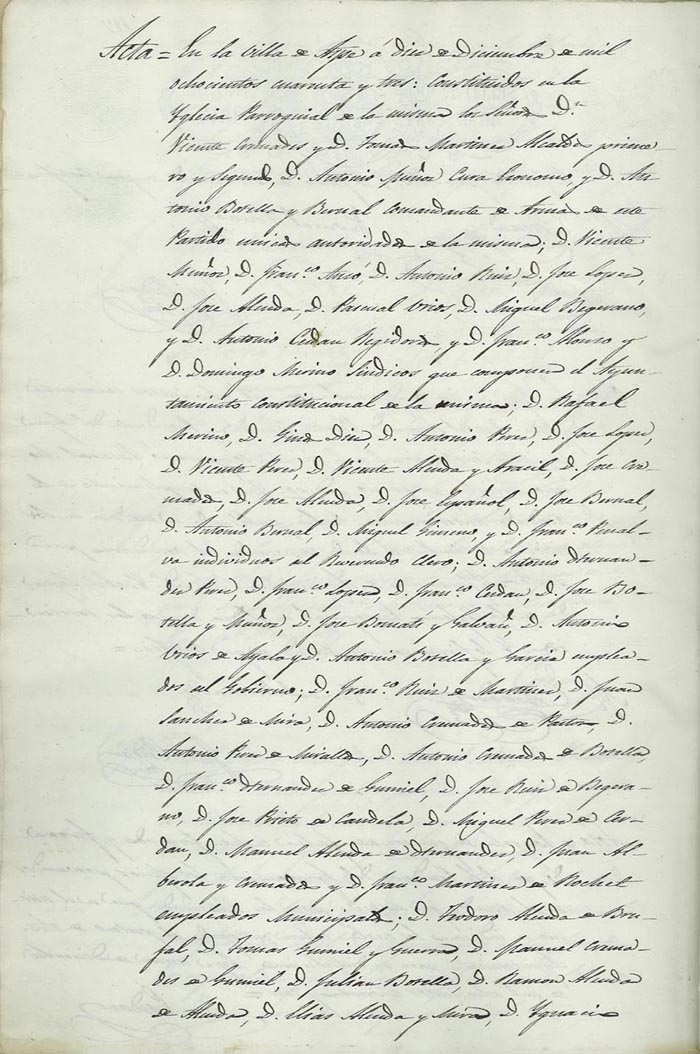 Acta = En la villa de Aspe á diez de Diciembre de mil
ochocientos cuarenta y tres: Constituidos en la
Yglecia Parroquial de la misma los Señores D.n
Vicente Cremades y D. Tomas Martinez Alcaldes prime-
ro y Segundo, D. Antonio Muñoz Cura Economo, y D. An-
tonio Botella y Bernal Comandante de Armas de este
Partido unicas autoridades de la misma; D. Vicente
Muñoz, D. Fran.co D. Antonio Ruiz, D. Jose Lopez,
D. Jose Almda, D. Pascual Urios, D. Miguel Begerano,
y D. Antonio Cerdan Regidores y D. Fran.co Alonso y
D. Domingo Merino Sindicos que componen el Ayun-
tamiento Constitucional de la misma; D. Rafael
Merino, D. Gines Diez, D. Antonio Perez, D. Jose Lopez,
D. Vicente Perez, D. Vicente Almda y Aracil, D. Jose Cre-
mades, D. Jose Almda, D. Jose Español, D. Jose Bernal,
D. Antonio Bernal, D. Miguel Gimeno, y D. Fran.co Penal-
va individuos del Reverendo Clero; D. Antonio Hernan-
dez Perez, D. Fran.co Lopez, D. Fran.co Cerdan, D. Jose Bo-
tella y Muñoz, D. Jose y Galvañ, D. Antonio
Urios de Ayala y D. Antonio Botella y Garcia emplea-
dos del Gobierno; D. Fran.co Ruiz de Martinez, D. Juan
Sanchez de Mira, D. Antonio Cremades de Pastor, D.
Antonio Perez de Miralles, D. Antonio Cremades de Botella,
D. Fran.co Hernandez de Gumiel, D. Jose Ruiz de Begera-
no, D. Jose Prieto de Candela, D. Miguel Perez de Cer-
dan, D. Manuel Almda de Hernandez, D. Juan Al-
berola y Cremades y D. Fran.co Martinez de Rochel
empleados Municipales; D. Teodoro Almda de Bru-
fal, D. Tomas Gumiel y Guerra, D. Manuel Crema-
des de Gumiel, D. Julian Botella, D. Ramon Almda
de Almda, D. Elias Almda y Mira, D. Ygnacio